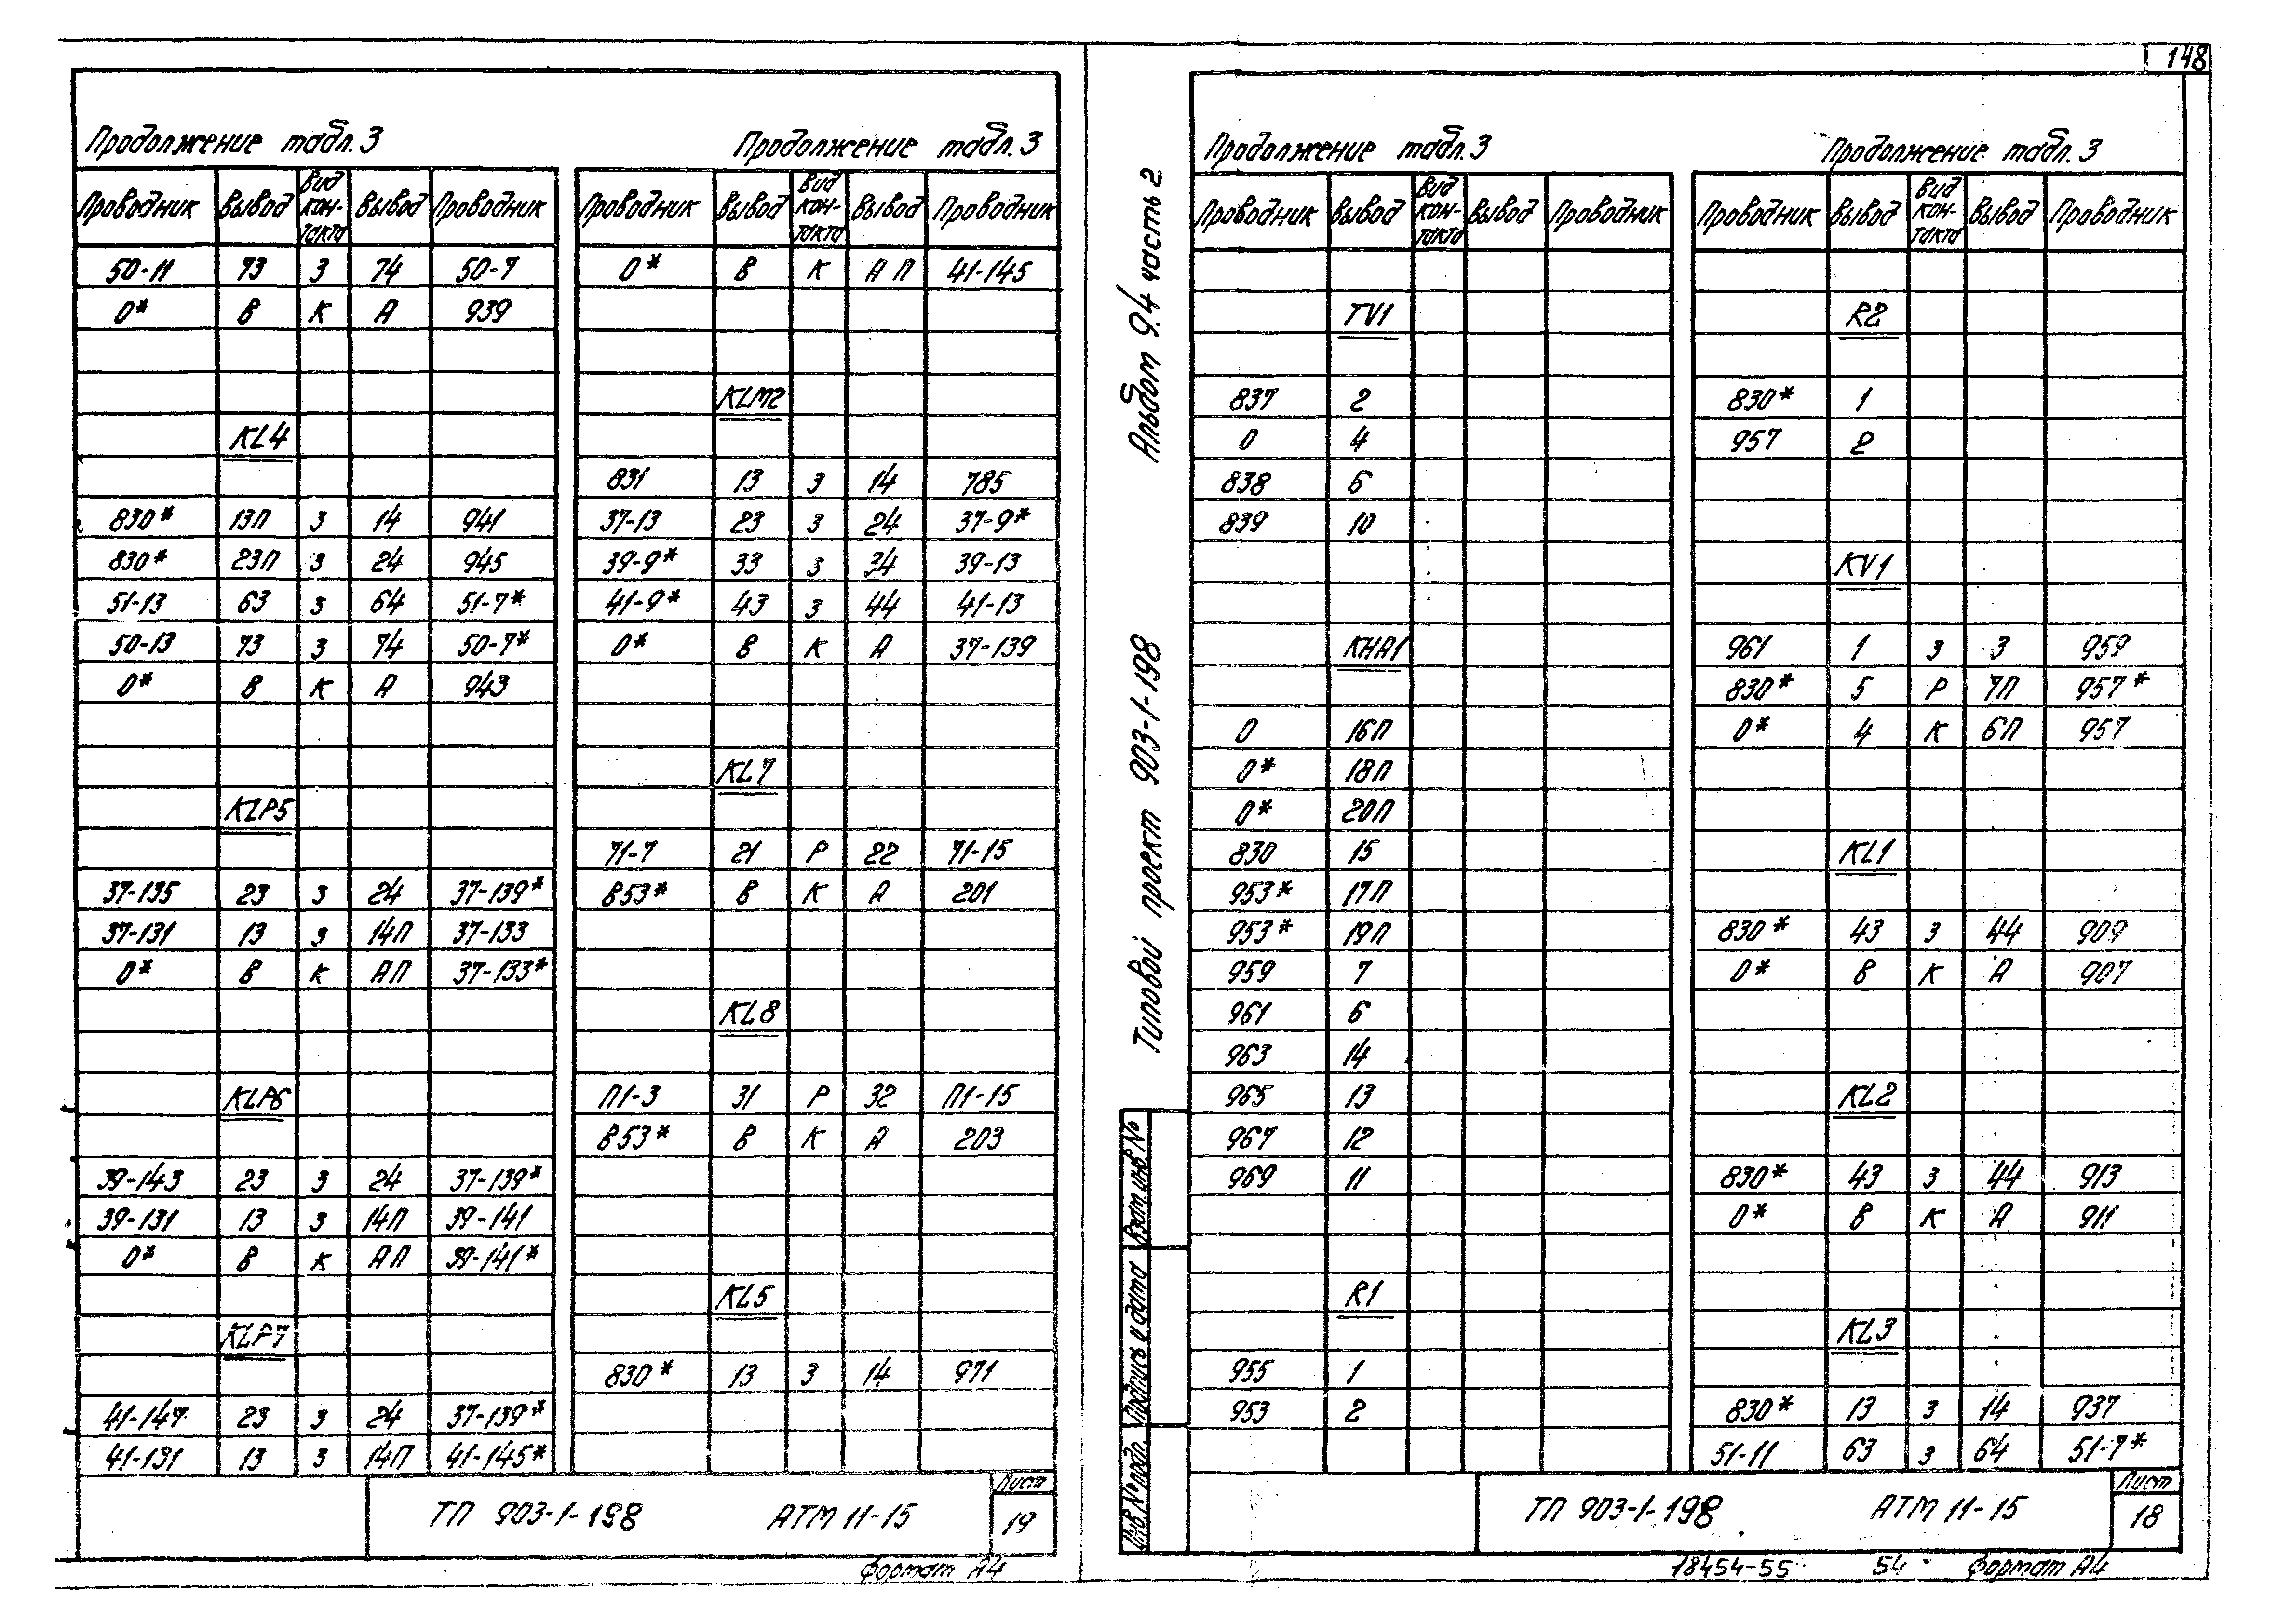 148
Продолжение табл. 3
Проводник Вывод Вид контакта Вывод Проводник
50-11 73 З 74 50-7
0* В К А 939
KL4
830* 13П З 14 941
830* 23П З 24 945
51-13 63 З 64 51-7*
50-13 73 З 74 50-7*
0* В К А 943
KLP5
37-135 23 З 24 37-139*
37-131 13 З 14П 37-133
0* В К АП 37-133*
KLP6
39-143 23 З 24 37-139*
39-131 13 З 14П 39-141
0* В К АП 39-141*
KLP7
41-147 23 З 24 37-139*
41-131 13 З 14П 41-145*
Продолжение табл. 3
Проводник Вывод Вид контакта Вывод Проводник
0* В К АП 41-145
KLM2
831 13 З 14 785
37-13 23 З 24 37-9*
39-9* 33 З 34 39-13
41-9* 43 З 44 41-13
0* В К А 37-139
KL7
71-7 21 Р 22 71-15
В53* В К А 201
KL8
П1-3 31 Р 32 П1-15
В53* В К А 203
KL5
830* 13 З 14 971
ТП 903-1-198 АТМ 11-15 Лист 19
Формат А4
Альбом 9.4 часть 2
Типовой проект 903-1-198
Взам инв. №
Подпись и дата
Инв. № подл.
Продолжение табл. 3
Проводник Вывод Вид контакта Вывод Проводник
TV1
837 2
0 4
838 6
839 10
КНА1
0 16П
0* 18П
0* 20П
830 15
953* 17П
953* 19П
959 7
961 6
963 14
965 13
967 12
969 11
R1
955 1
953 2
Продолжение табл. 3
Проводник Вывод Вид контакта Вывод Проводник
R2
830* 1
957 2
KV1
961 1 З 3 959
830* 5 Р 7П 957*
0* 4 К 6П 957
KL1
830* 43 З 44 909
0* В К А 907
KL2
830* 43 З 44 913
0* В К А 911
KL3
830* 13 З 14 937
51-11 63 З 64 51-7*
ТП 903-1-198 АТМ 11-15 Лист 18
18454-55 54 Формат А4